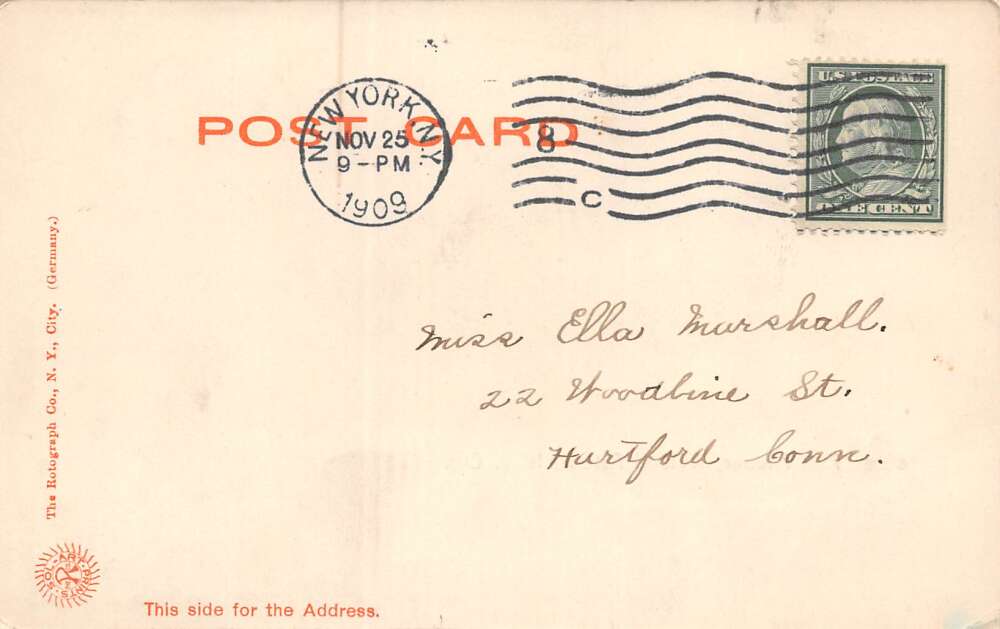 POST CARD
NEW YORK, N.Y.
NOV 25
9-PM
1909
8
C
U.S. POSTAGE
ONE CENT
Miss Ella Marshall.
22 Woodbine St.
Hartford Conn.
The Rotograph Co., N. Y., City. (Germany.)
SOL-ART-PRINTS
This side for the Address.